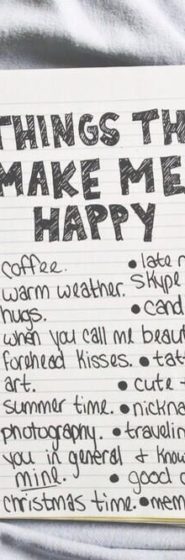 THINGS TH
MAKE ME
HAPPY
coffee. • late n
warm weather. Skype
hugs. • cand
when you call me beaut
forehead kisses. • tat
art. • cute
summer time. • nickna
photography. • travelin
you in general & know
mine. • good
christmas time. • mem